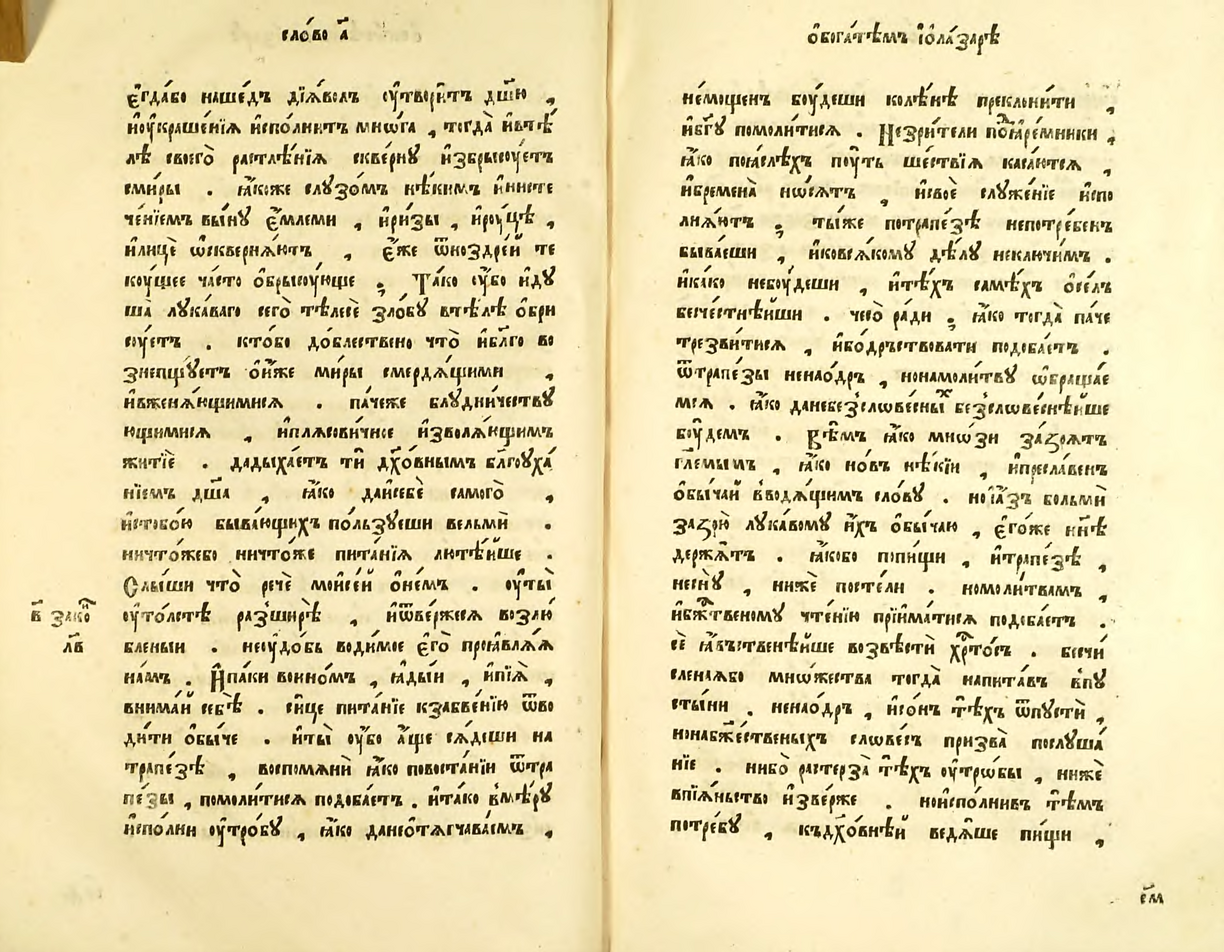 сло́во а҃
є҆гда́бо наше́дъ дїѧ́волъ ѹ҆твори́тъ дш҃ю ,
и҆оу҆краше́нїѧ и҆спо́лнитъ мнѡ́га , тогда̀ и҆втѣ́
лѣ своего̀ растлѣ́нїѧ скве́рну и҆збрысѹ́етъ
сми́ры . ꙗ҆́коже слузо́мъ нѣ́кимъ и҆ нисте
че́нїемъ вы́ну є҆́млеми , и҆ри́зы , и҆рѹ́цѣ ,
и҆лицѐ ѡ҆сквернѧ́ютъ , є҆́же ѿноздре́й те
коущее ча́сто о҆брысѹ́юще ; Та́ко ѹ҆́бо и҆дꙋ
ша лука́ваго сего̀ тѣ́лесѐ зло́бꙋ втѣ́лѣ ѻбри
сѹ́етъ . кто́бо до́блествено что̀ и҆бл҃го во
знепщꙋ́етъ ѻи҆́же ми́ры смердѧ́щими ,
и҆вженѧ́ющимисѧ . па́чеже блꙋдни́чествꙋ
ющимисѧ , и҆плѧсови́чнсе и҆зволѧ́ющимъ
житїѐ . дадыха́етъ ти̑ дх҃о́внымъ бл҃гоуха́
нїемъ дш҃а̀ , ꙗ҆́ко даи҆себѐ самого̀ ,
и҆стобо́ю быва́ющихъ по́льзꙋеши вельмѝ .
ничто́жебо ничто́же пита́нїѧ лютѣ́йше .
Слы́ши что̀ речѐ мѡи҆се́й ѻ҆́немъ . ѹ҆ты̀
ѹ҆то́лстѣ разширѣ̀ , и҆ѿве́ржесѧ возлю́
бленыи . неѹдо́бь води́мое є҆го̀ проꙗвлѧ́ѧ
на́мъ . И҆па́ки воино́мъ , ꙗ҆ды́и , и҆пїѧ̀ ,
внима́й себѣ̀ . си́це пита́нїе кзабве́нїю ѿво
ди́ти ѻ҆бы́че . и҆ты̀ ѹ҆́бо а҆́ще сѧ́деши на
трапе́зѣ , воспомѧнѝ ꙗ҆́ко повоста́нїи ѿтра
пе́зы , помоли́тисѧ подоба́етъ . и҆та́ко вмѣ́рꙋ
и҆спо́лни ѹ҆тро́бꙋ , ꙗ҆́ко данеѻ҆тѧгчава́емъ ,
в҃ зако
л҃в
ѻ҆бога́тѣмъ і҆ѻла́зарѣ
не́мощенъ бѹ́деши колѣ́нѣ преклони́ти ,
и҆бг҃ꙋ помоли́тисѧ . Незри́тели поꙗре́мники ,
ꙗ҆́ко послѣ́хъ пѹ́ть ше́ствїѧ каса́ютсѧ ,
и҆бремена̀ нѡ́сѧтъ , и҆своѐ слꙋже́нїе и҆спо
лнѧ́ютъ ; ты́же потрапе́зѣ непотре́бенъ
быва́еши , и҆ковсѧ́комꙋ дѣ́лꙋ неключи́мъ .
и҆ка́ко небѹ́деши , и҆тѣ́хъ самѣ́хъ ѻ҆се́лъ
безче́стнѣйши . чесо̀ ра́ди ; ꙗ҆́ко тогда̀ па́че
трезви́тисѧ , и҆бо́дръствовати подоба́етъ .
ѿтрапе́зы ненаѻ҆́дръ , нонамоли́твꙋ ѡ҆браща́е
мсѧ . ꙗ҆́ко данебезсло́весных безслове́снѣйше
бѹ́демъ . Вѣ́мъ ꙗ҆́ко мнѡ́зи зазо́рѧтъ
гл҃емымъ , ꙗ҆́ко но́въ нѣ́кїи , и҆пресла́венъ
ѻ҆бы́чай вводѧ́щимъ сло́вꙋ . но і҆а҆́зъ больмѝ
зазо́рю лука́вомꙋ и҆́хъ ѻ҆бы́чаю , є҆го́же нн҃ѣ
держѧ́тъ . ꙗ҆́кобо попи́щи , и҆трапе́зѣ ,
несꙋ́ , ниже́ посте́ли . номоли́твамъ ,
и҆бж҃твеномꙋ чте́нїю прїима́тисѧ подоба́етъ .
сѐ ꙗ҆́вьственѣйше возвѣстѝ хр҃то́съ . бесчи́
сленаѧбо мнѡ́жества тогда̀ напита́въ впꙋ
сты́ни . ненаѻ҆́дръ , и҆со́нъ тѣ́хъ ѿпꙋстѝ ,
нонабж҃е́ственыхъ слове́съ призва̀ послꙋша́
нїе . нибо̀ растерза̀ тѣ́хъ ѹ҆трѡ́бы , ниже́
впїѧ́ньство и҆зве́рже . ноиспо́лнивъ тѣ́мъ
потре́бꙋ , къдꙋхо́внѣй ведѧ́ше пи́щи ,
є҆м